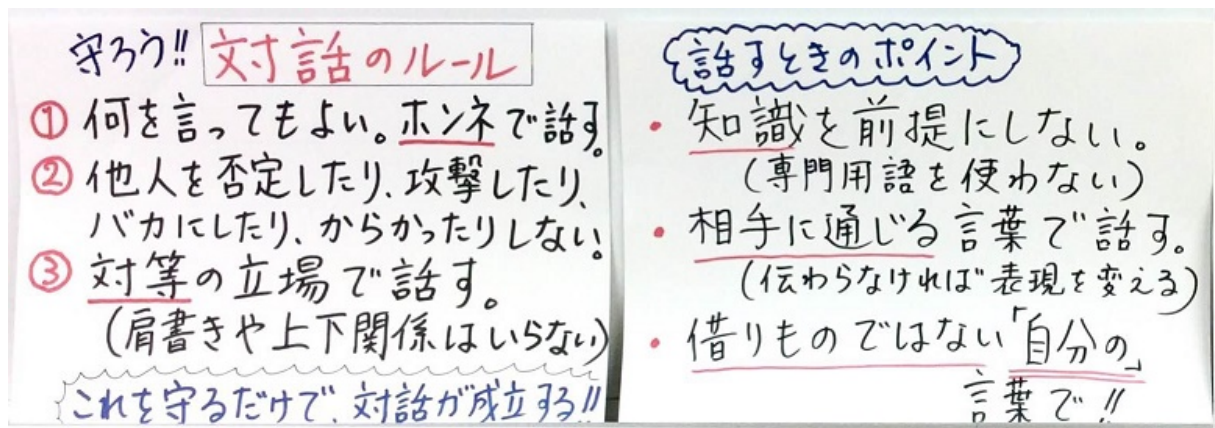 守ろう!! 対話のルール
① 何を言ってもよい。ホンネで話す。
② 他人を否定したり、攻撃したり、
バカにしたり、からかったりしない。
③ 対等の立場で話す。
(肩書きや上下関係はいらない)
これを守るだけで、対話が成立する!!
話すときのポイント
・知識を前提にしない。
(専門用語を使わない)
・相手に通じる言葉で話す。
(伝わらなければ表現を変える)
・借りものではない「自分の」
言葉で!!